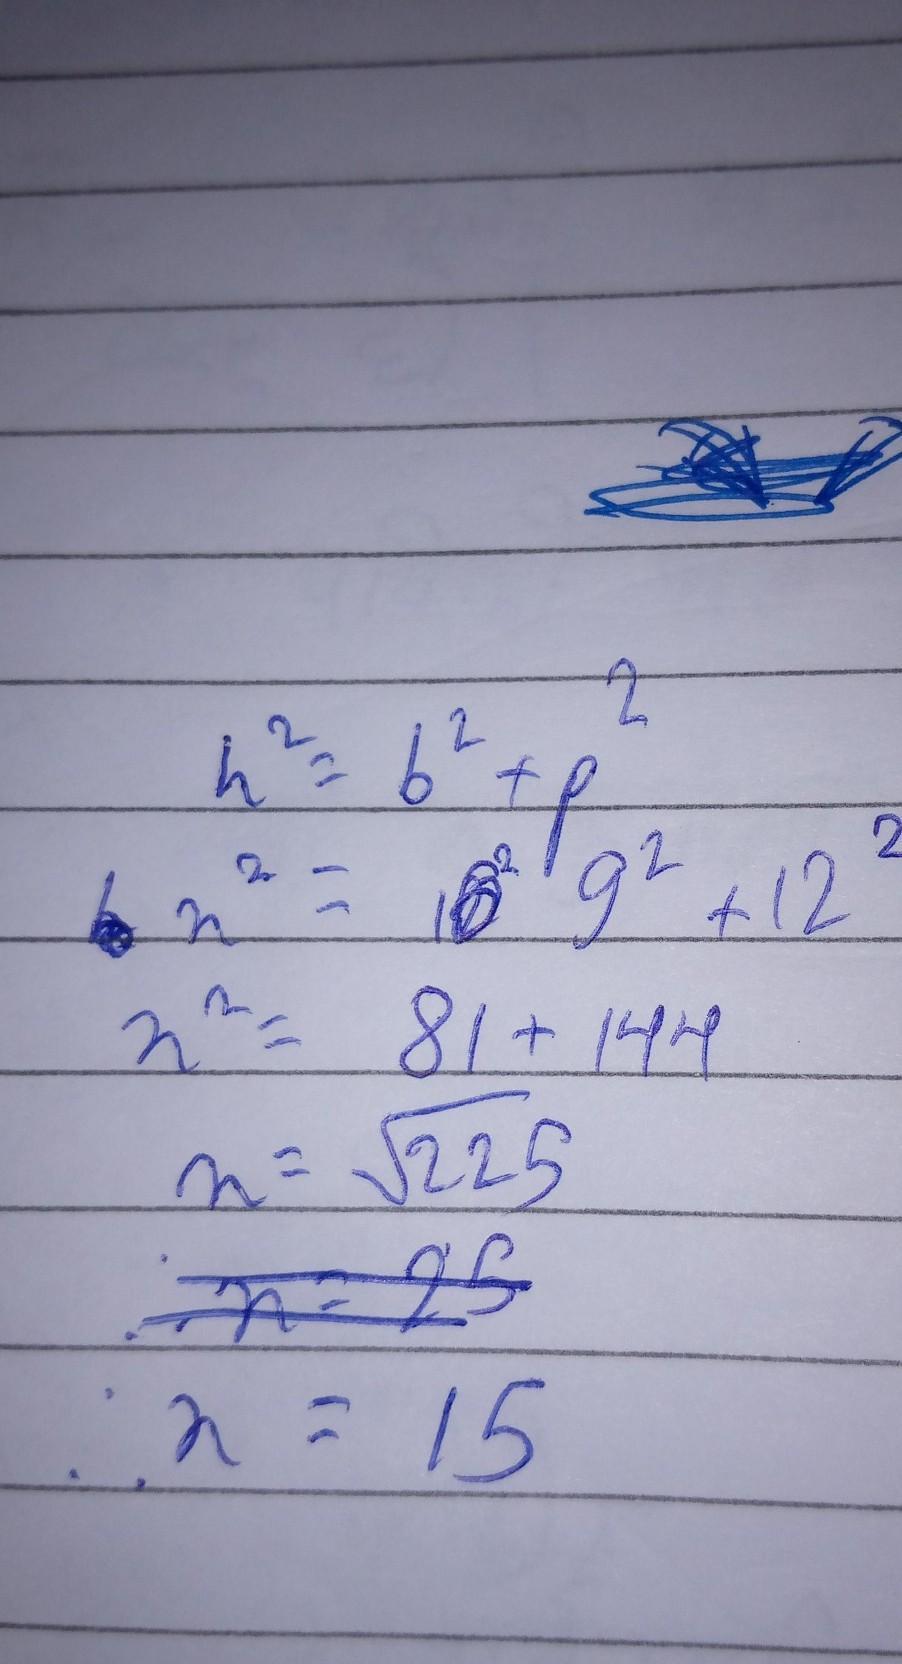 h² = b² + p²
x² = 9² + 12²
x² = 81 + 144
x = √225
x = 25
∴ x = 15